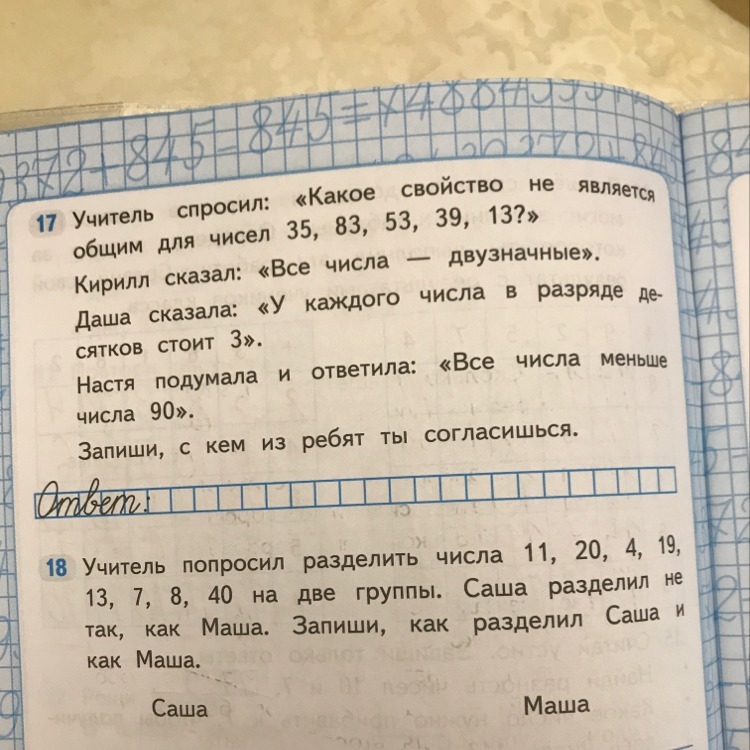 372+845-845=
17 Учитель спросил: «Какое свойство не является
общим для чисел 35, 83, 53, 39, 13?»
Кирилл сказал: «Все числа — двузначные».
Даша сказала: «У каждого числа в разряде де-
сятков стоит 3».
Настя подумала и ответила: «Все числа меньше
числа 90».
Запиши, с кем из ребят ты согласишься.
Ответ:
18 Учитель попросил разделить числа 11, 20, 4, 19,
13, 7, 8, 40 на две группы. Саша разделил не
так, как Маша. Запиши, как разделил Саша и
как Маша.
Саша Маша